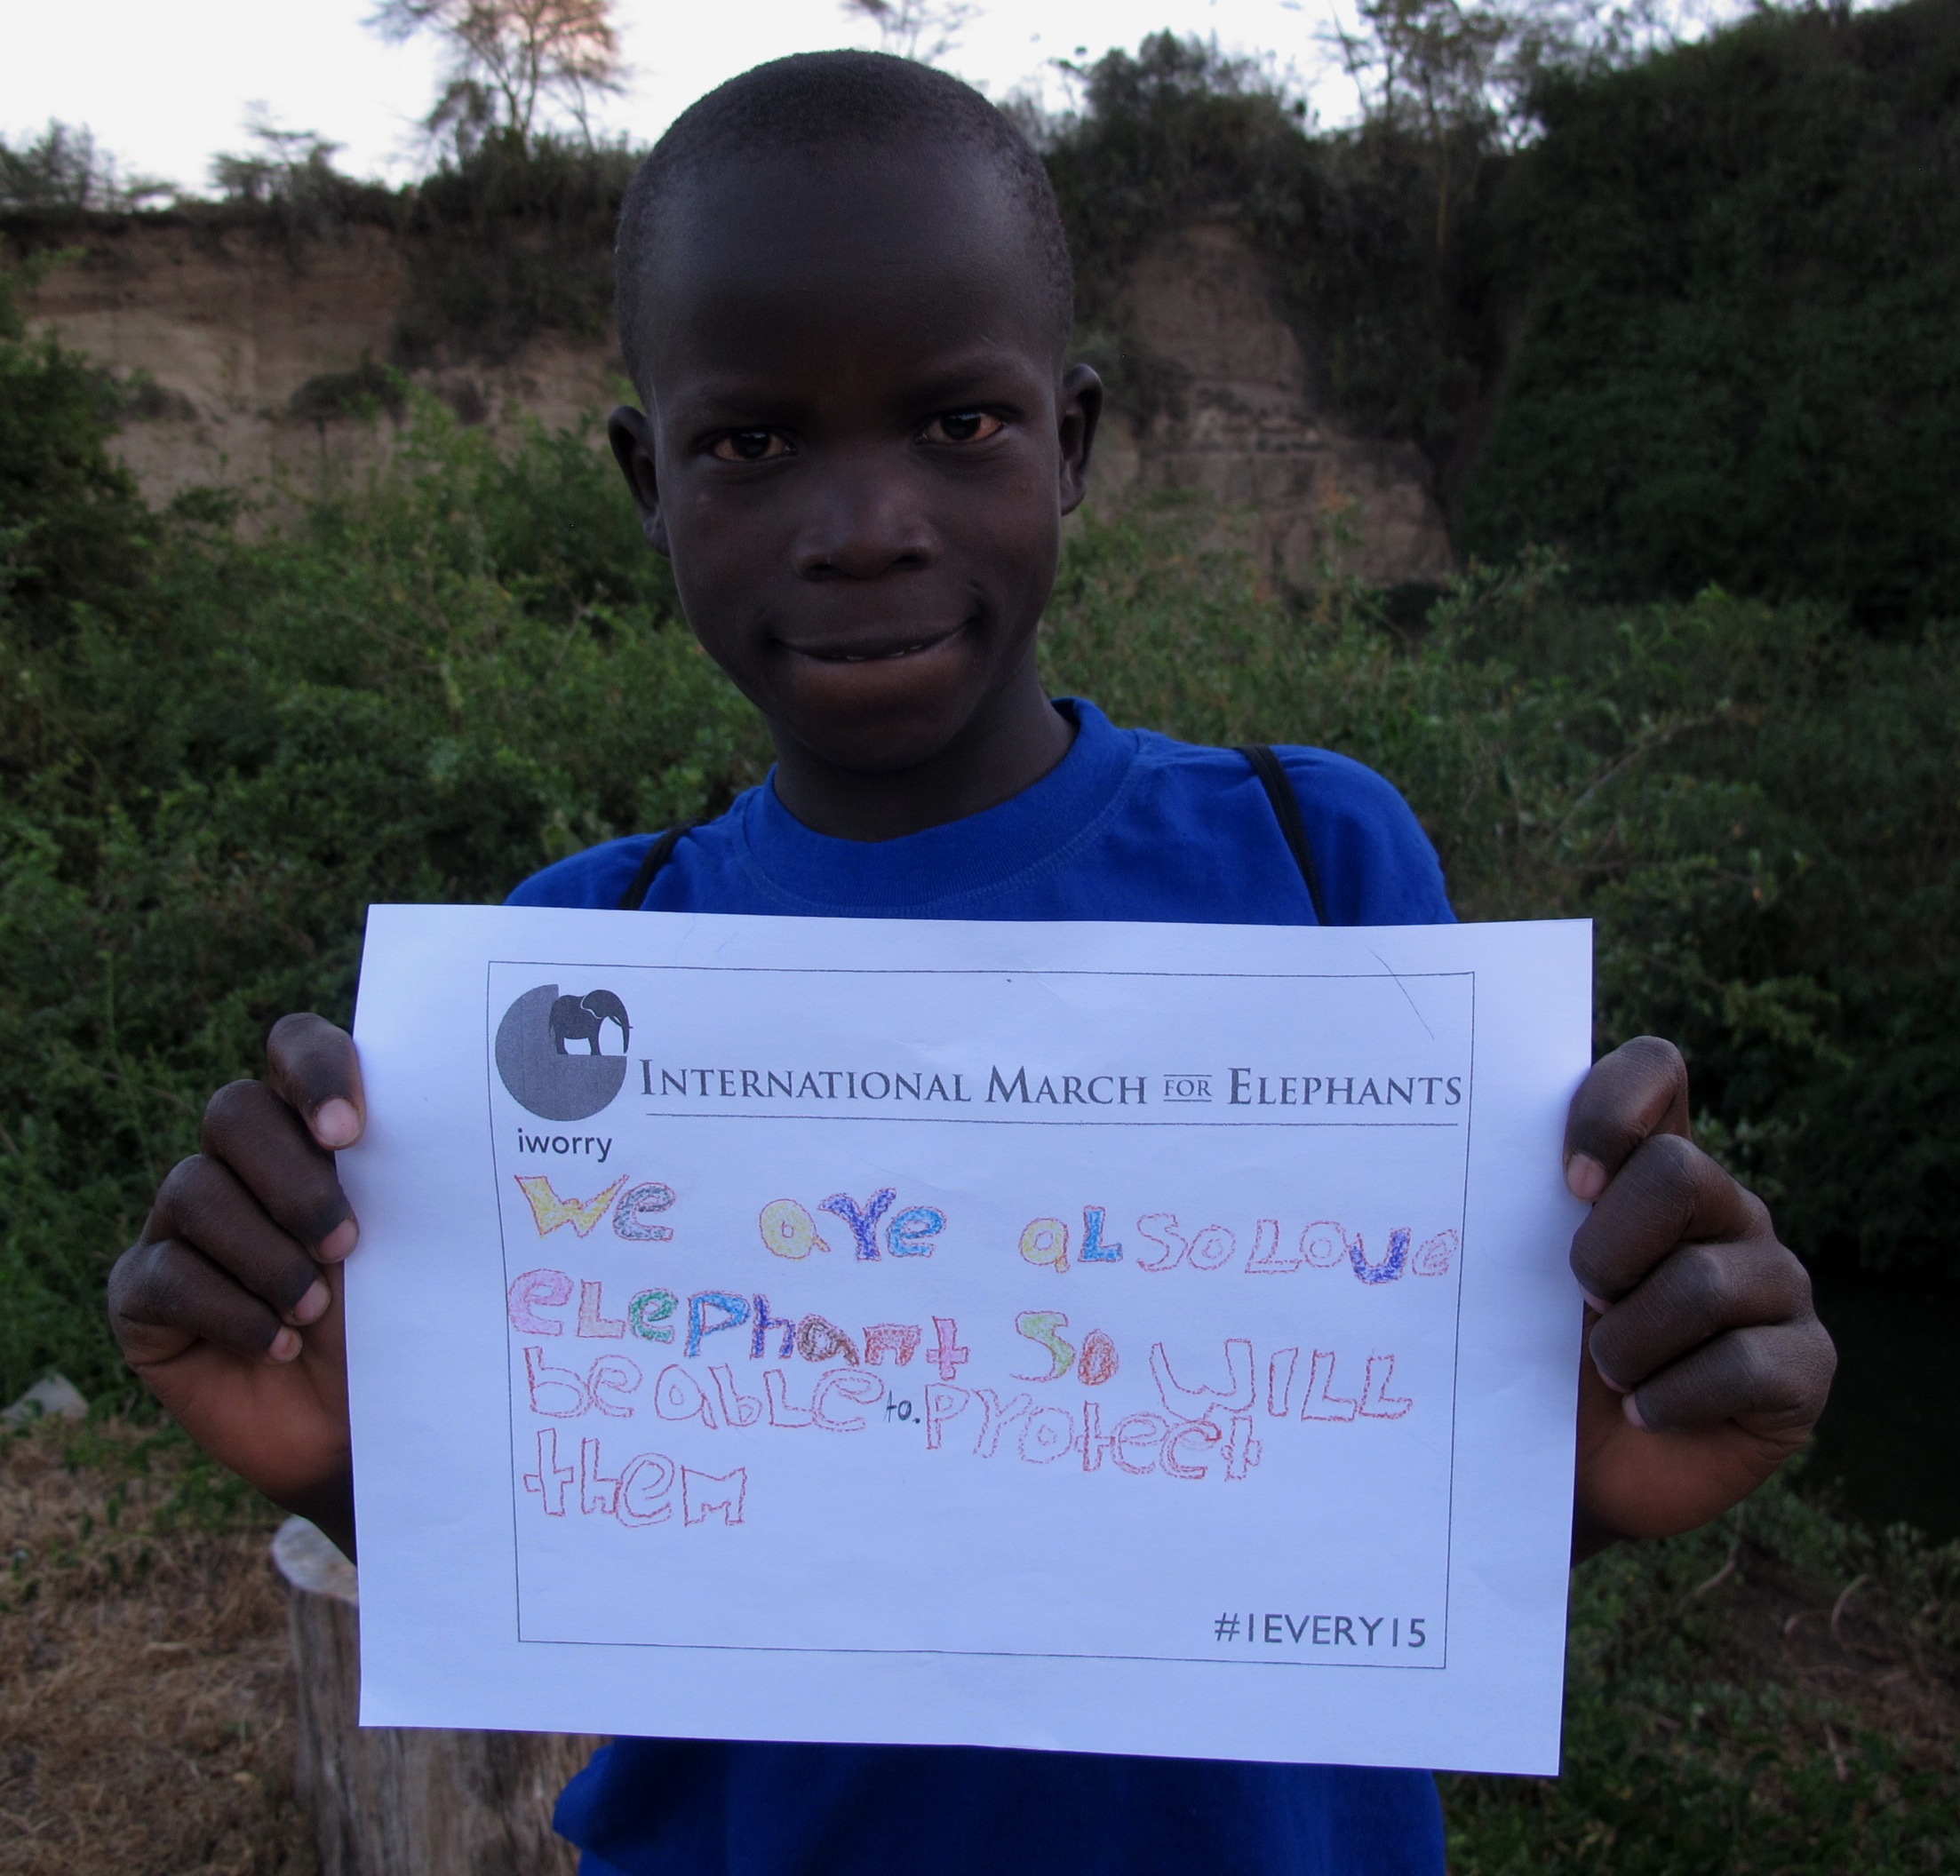 INTERNATIONAL MARCH FOR ELEPHANTS
iworry
we are aLso Love
eLephant So WILL
be abLe to. protect
them
#1EVERY15